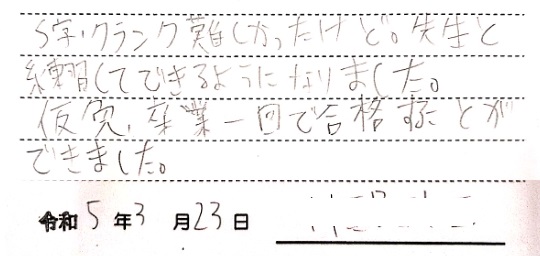 S字・クランク難しかったけど。先生と
練習してできるようになりました。
仮免、卒業一回で合格することが
できました。
令和5年3月23日